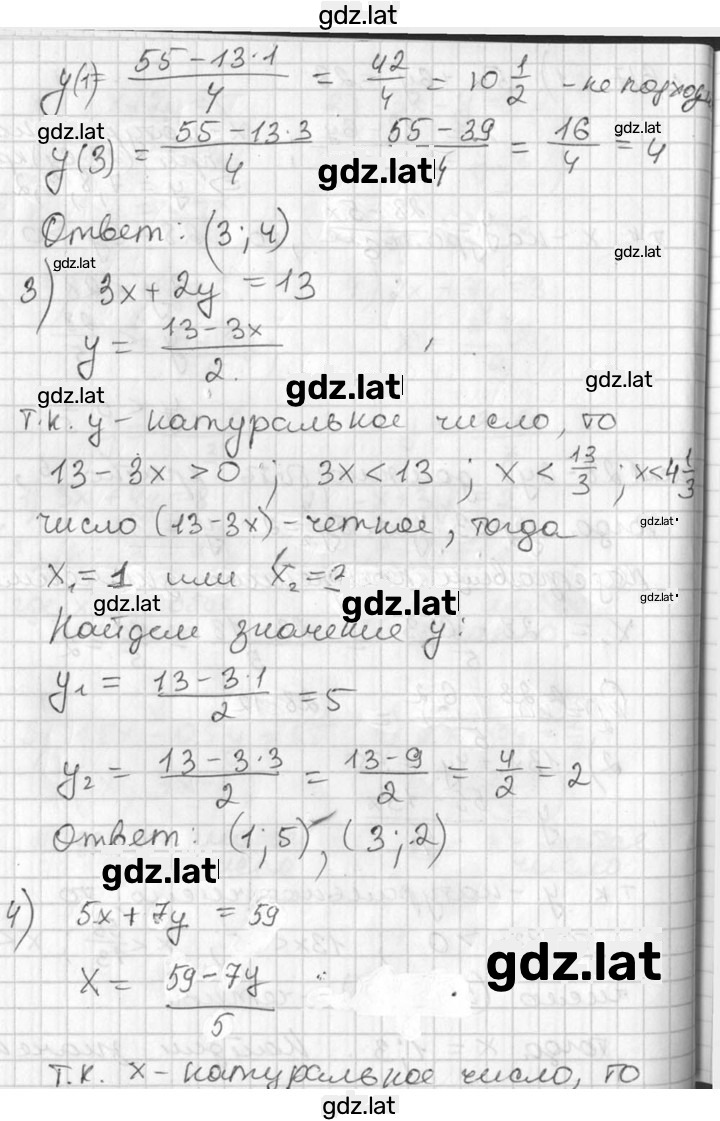 gdz.lat
y(1) = (55-13·1)/4 = 42/4 = 10 1/2 - не подход
gdz.lat gdz.lat
y(3) = (55-13·3)/4 (55-39)/4 = 16/4 = 4
gdz.lat
Ответ: (3; 4)
gdz.lat gdz.lat
3) 3x + 2y = 13
y = (13-3x)/2
gdz.lat gdz.lat gdz.lat
т.к. y - натуральное число, то
13-3x > 0 ; 3x < 13 ; x < 13/3 ; x < 4 1/3
число (13-3x) - четное, тогда gdz.lat
x₁ = 1 или x₂ =
gdz.lat gdz.lat gdz.lat
Найдем значение y:
y₁ = (13-3·1)/2 = 5
y₂ = (13-3·3)/2 = (13-9)/2 = 4/2 = 2
Ответ: (1; 5), (3; 2)
gdz.lat
4) 5x + 7y = 59
gdz.lat
x = (59-7y)/5
т.к. x - натуральное число, то
gdz.lat